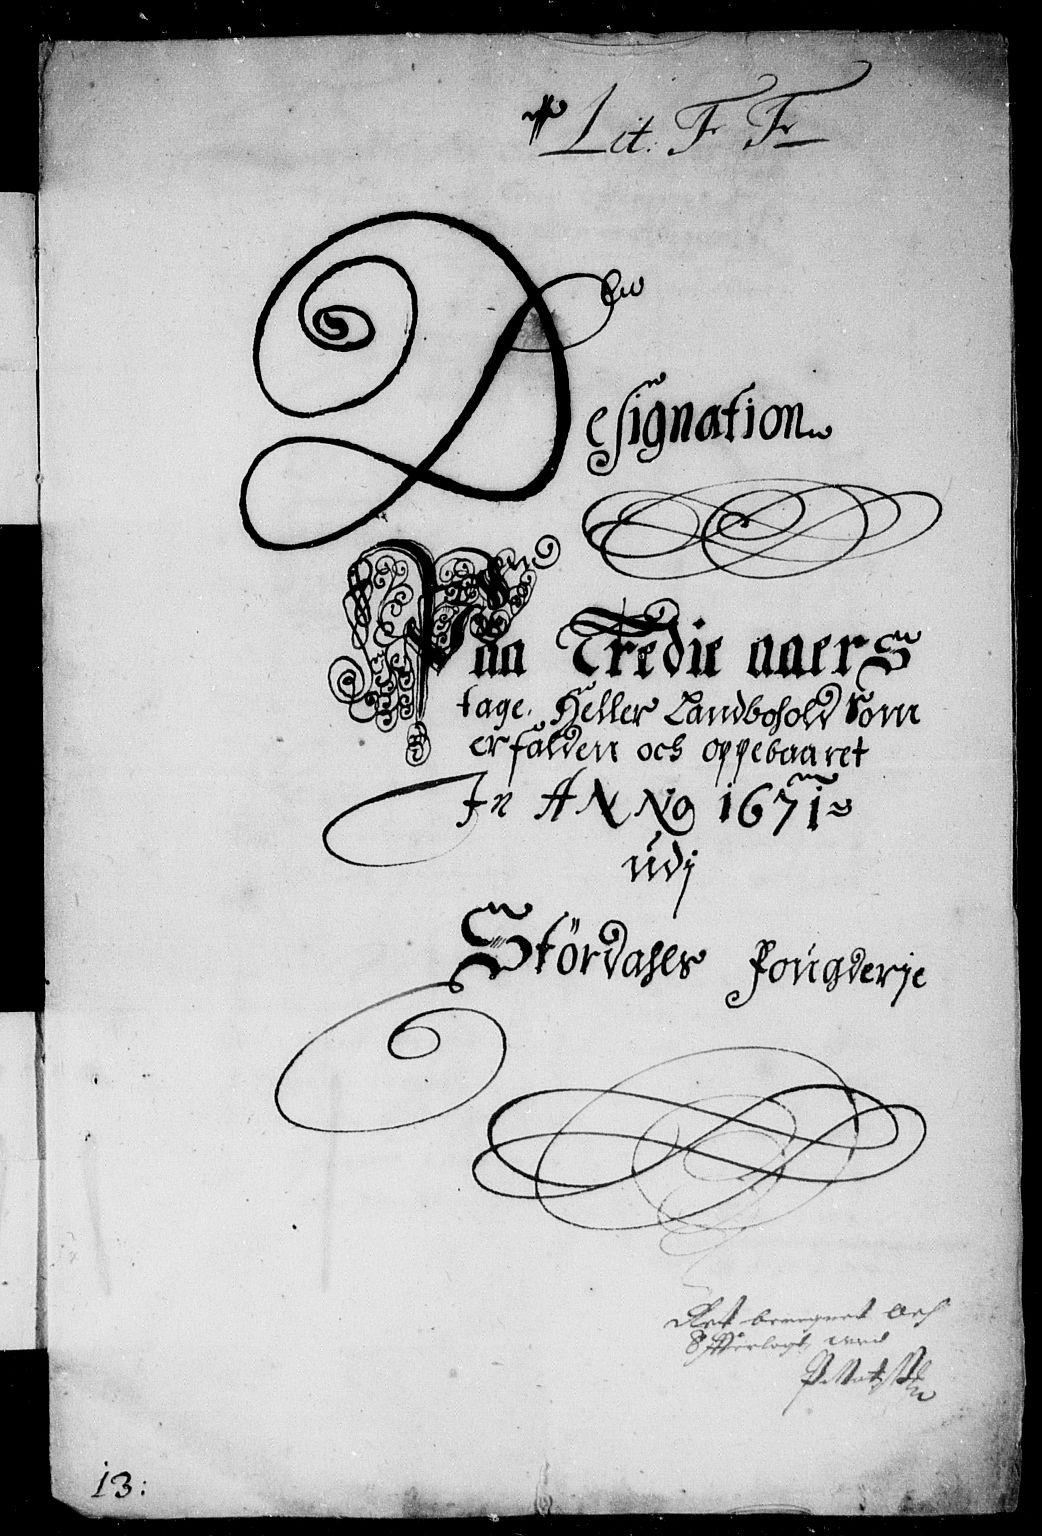 Lit. F F
Designation
Paa Tredie aaers
tage. Heller Landbohold Som
erfalden och oppebaaret
In ANNO 1671
udj
Stördahlss Fougderje
Ret beregnet och
13: